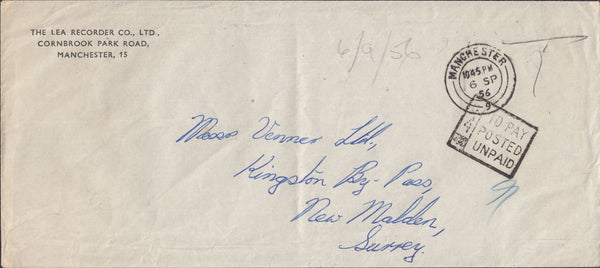 THE LEA RECORDER CO., LTD.,
CORNBROOK PARK ROAD,
MANCHESTER, 15
6/9/56
MANCHESTER
1045 PM
6 SP
56
9
TO PAY
POSTED
UNPAID
Messrs Venner Ltd.,
Kingston By-Pass,
New Malden,
Surrey.